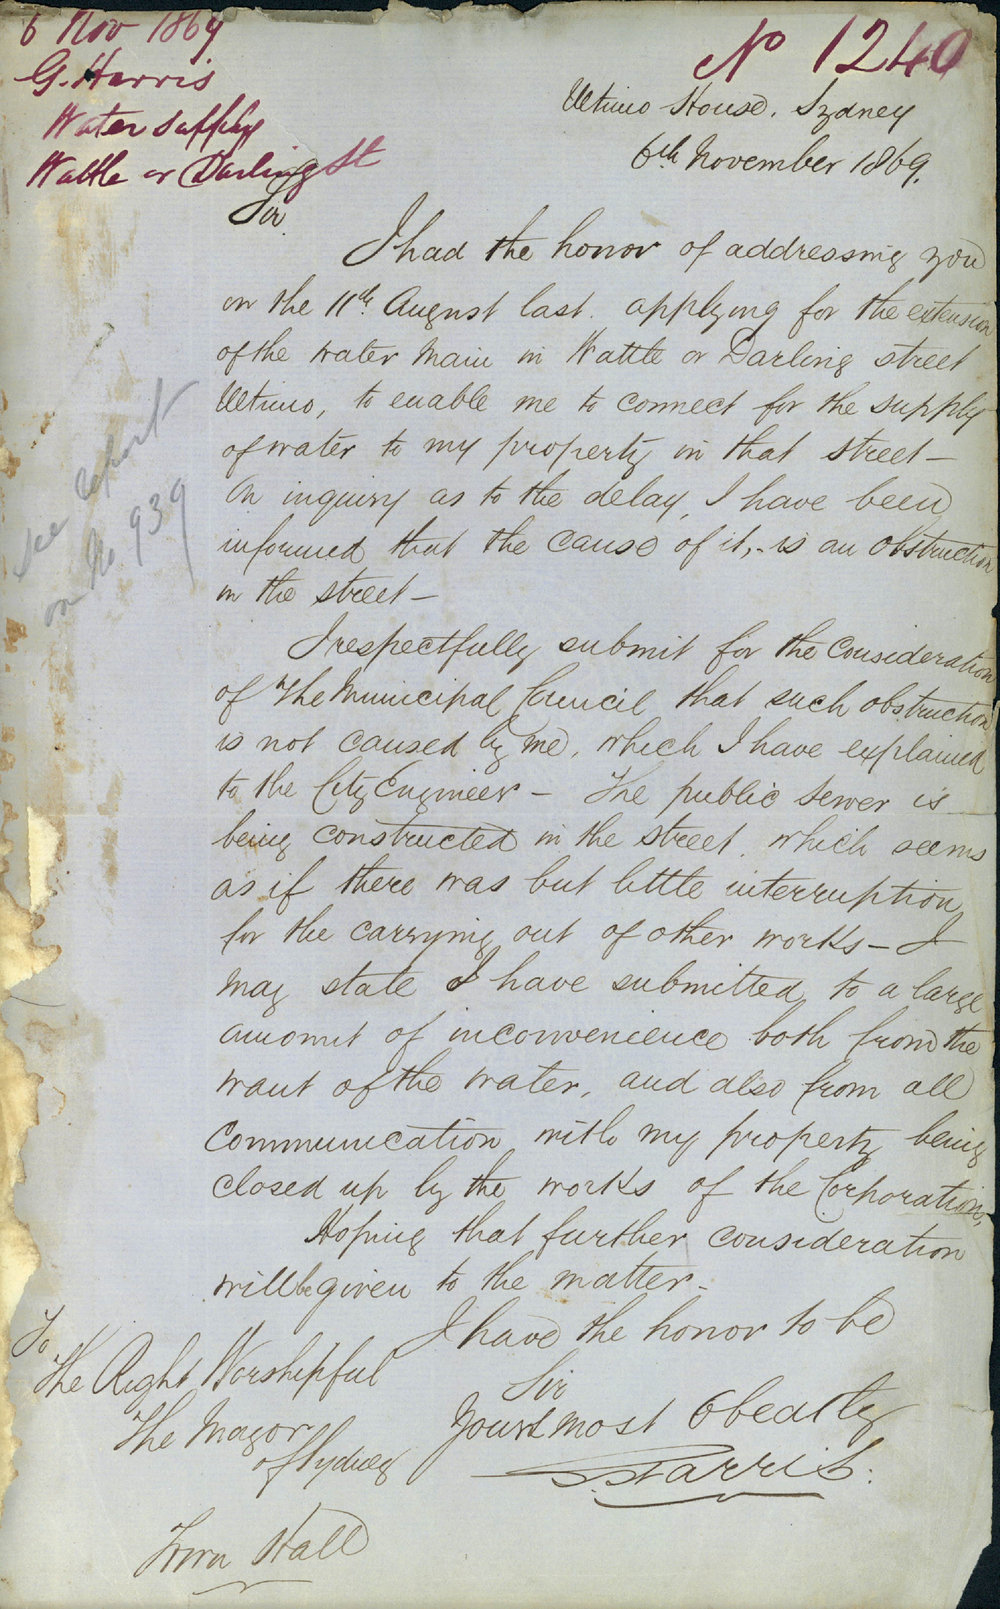 6 Nov 1869
G. Harris
Water supply
Wattle or Darling St
No 1240
Ultimo House, Sydney
6th November 1869.
Sir
I had the honor of addressing you
on the 11th August last. applying for the extension
of the water main in Wattle or Darling street
Ultimo, to enable me to connect for the supply
of water to my property in that street -
On inquiry as to the delay, I have been
informed that the cause of it, is an obstruction
in the street -
see report
on No 939
I respectfully submit for the consideration
of The Municipal Council that such obstruction
is not caused by me, which I have explained
to the City Engineer - The public sewer is
being constructed in the street, which seems
as if there was but little interruption
for the carrying out of other works - I
may state I have submitted to a large
amount of inconvenience both from the
want of the water, and also from all
communication with my property being
closed up by the works of the Corporation,
Hoping that further consideration
will be given to the matter -
I have the honor to be
Sir
Yours most Obedtly
Harris.
To
The Right Worshipful
The Mayor
of Sydney
Town Hall